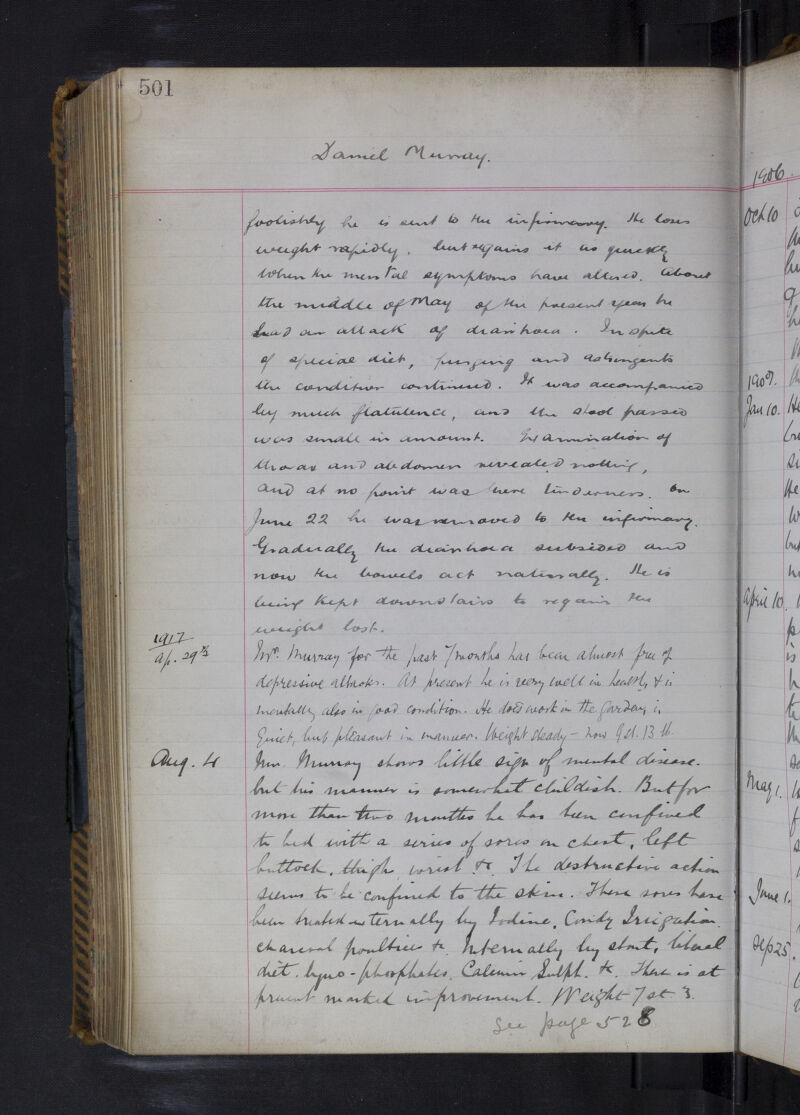 501
Daniel Murray.
foolishly he is sent to the infirmary. He loses
weight rapidly, but regains it as quickly
when the mental symptoms have altered. About
the middle of May of the present year he
had an attack of diarrhoea. In spite
of special diet, purging and astringents
the condition continued. It was accompanied
by much flatulence, and the stool passed
was small in amount. Examination of
thorax and abdomen revealed nothing,
and at no point was there tenderness. On
June 22 he was removed to the infirmary.
Gradually the diarrhoea subsided and
now the bowels act naturally. He is
being kept downstairs to regain the
weight lost.
1917
Ap. 29th
Mr. Murray for the past 7 months has been almost free of
depressive attacks. At present he is very well in health, & is
mentally also in good condition. He does work in the garden, is
Quiet, but pleasant in manner. Weight steady – now 9 st. 13 lb.
Aug. 4
Mr. Murray shows little sign of mental disease.
but his manner is somewhat childish. But for
more than two months he has been confined
to bed with a series of sores on chest, left
buttock, thigh, wrist &c. The destructive action
seems to be confined to the skin. These sores have
been treated externally by Iodine, Condy Irrigation,
charcoal poultices &c. Internally by stout, liberal
diet, hypo-phosphates, Calcium Sulph. &c. There is at
present marked improvement. Weight 7 st 3.
See page 528
1906
Oct 10
Jan 10.
April 10
May 1.
June 1.
Sep 25.